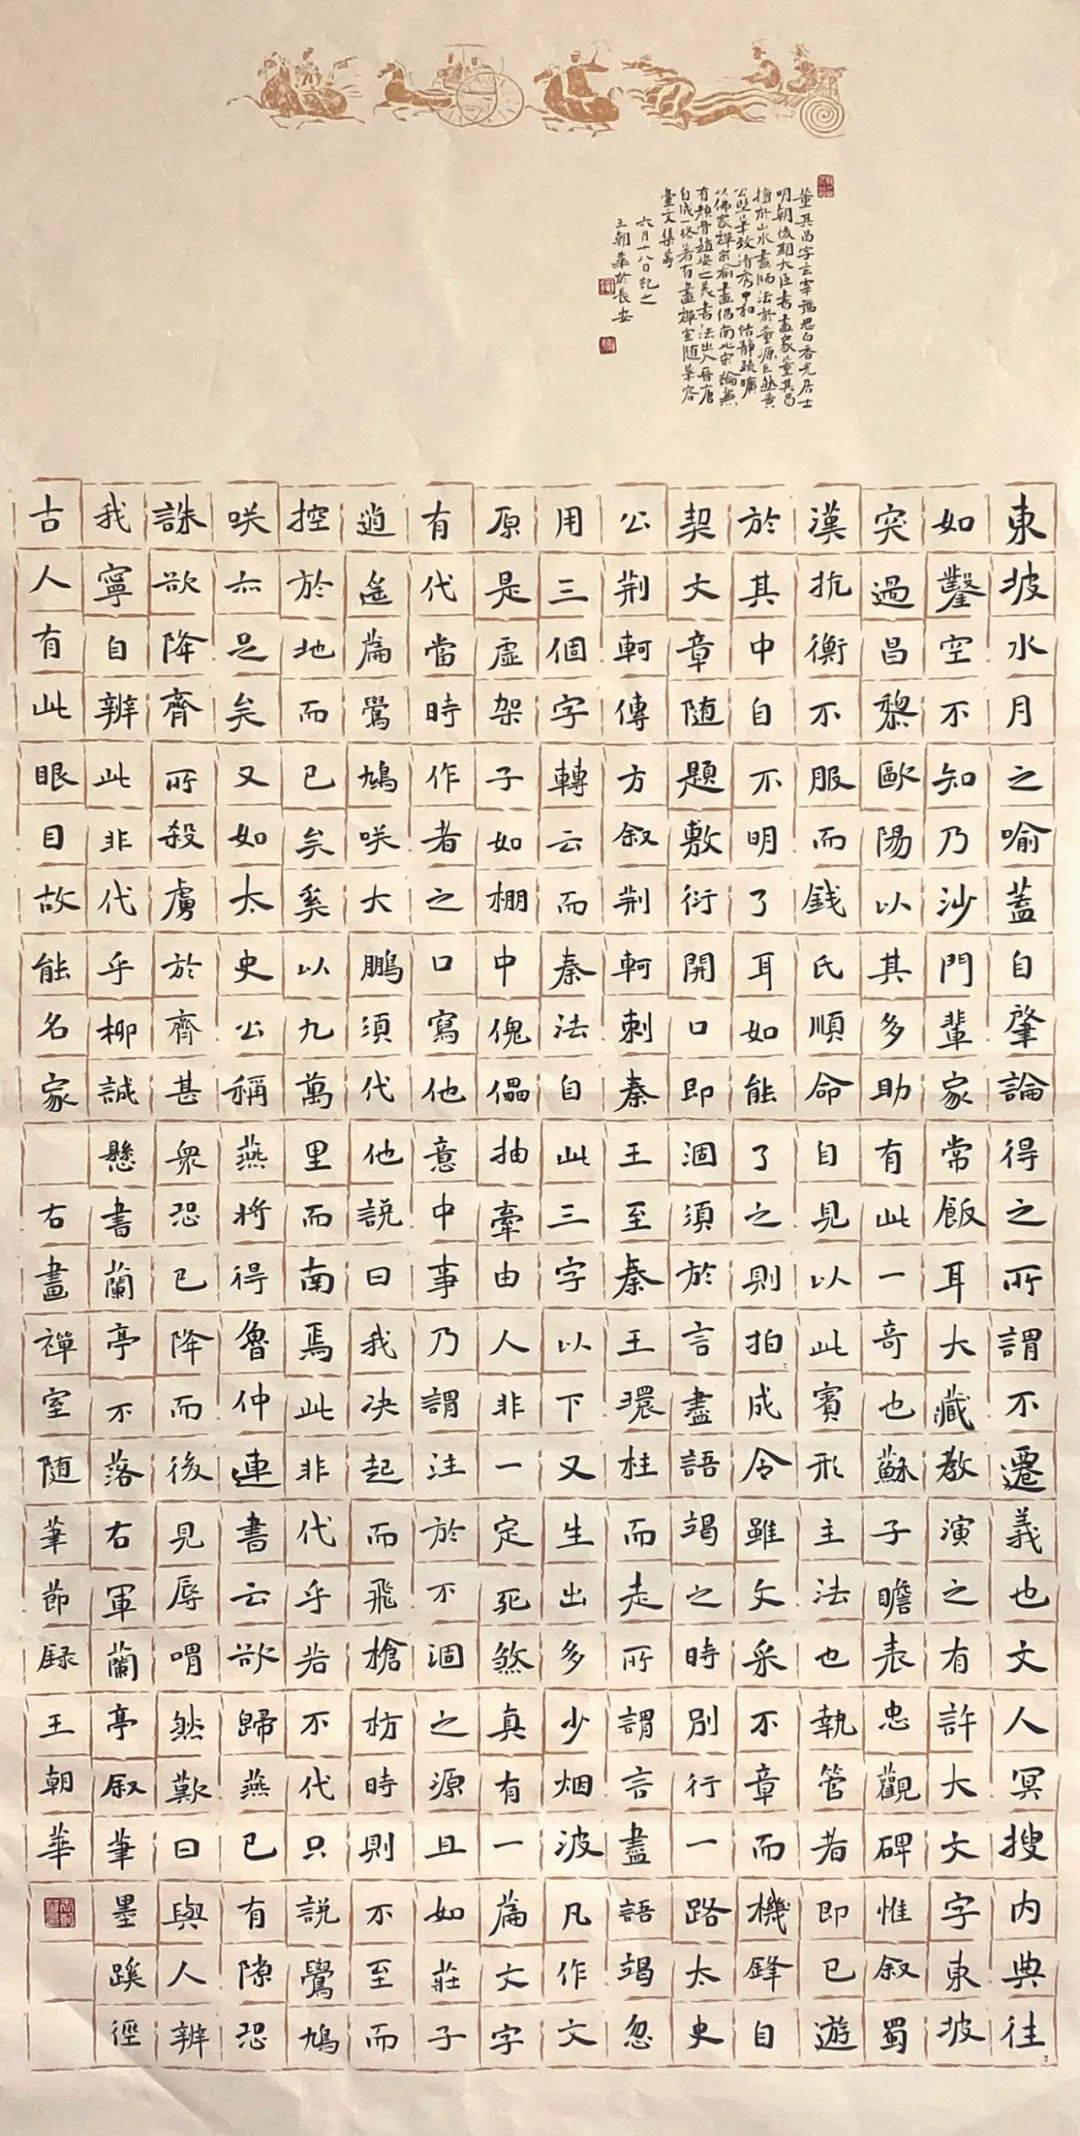 董其昌字玄宰號思白香光居士
明朝後期大臣書畫家董其昌
擅於山水畫師法於董源巨然黃
公望筆致清秀中和恬靜疏曠
以佛家禪宗喻畫倡南北宗論兼
有顏骨趙姿之美書法出入晉唐
自成一格著有畫禪室随筆容
臺文集等
六月十八日記之
王朝華於長安
東坡水月之喻蓋自肇論得之所謂不遷義也文人冥搜内典往
如鑿空不知乃沙門輩家常飯耳大藏教演之有許大文字東坡
突過昌黎歐陽以其多助有此一奇也蘇子瞻表忠觀碑惟叙蜀
漢抗衡不服而錢氏順命自見以此賓形主法也執管者即已遊
於其中自不明了耳如能了之則拍成令雖文采不章而機鋒自
契大章随題敷衍開口即涸須於言盡語竭之時別行一路太史
公荆軻傳方叙荆軻刺秦王至秦王環柱而走所謂言盡語竭忽
用三個字轉云而秦法自此三字以下又生出多少烟波凡作文
原是虛架子如棚中傀儡抽牽由人非一定死煞真有一篇文字
有代當時作者之口寫他意中事乃謂注於不涸之源且如莊子
逍遙篇鷽鳩咲大鵬須代他說曰我决起而飛槍枋時則不至而
控於地而已矣奚以九萬里而南焉此非代乎若不代只說鷽鳩
咲亦足矣又如太史公稱燕將得魯仲連書云欲歸燕已有隙恐
誅欲降齊所殺虜於齊甚衆恐已降而後見辱喟然歎曰與人辨
我寧自辨此非代乎柳誠懸書蘭亭不落右軍蘭亭叙筆墨蹊徑
古人有此眼目故能名家 右畫禪室随筆節録王朝華